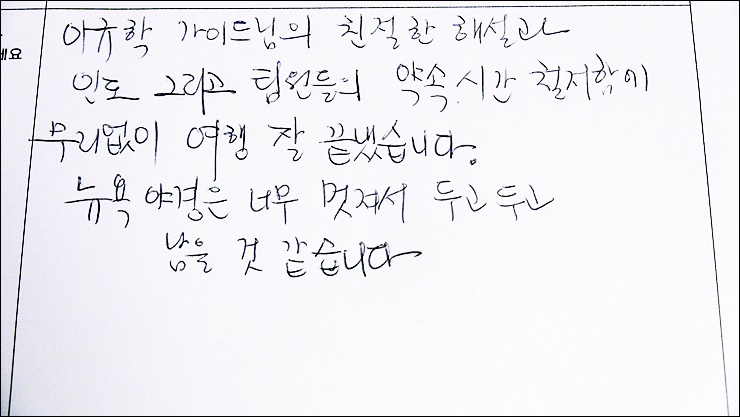 아규학 가이드님의 친절한 해설과
세요
인도 그리고 팀원들의 약속.시간 철저함에
무리없이 여행 잘 끝냈습니다.
뉴욕 야경은 너무 멋져서 두고 두고
남을 것 같습니다